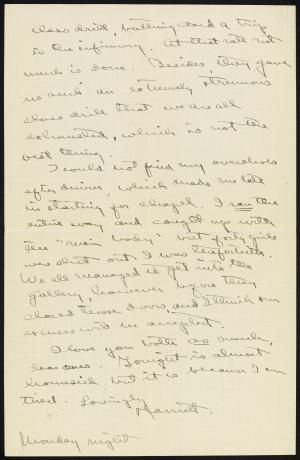 class drill, bathing and a trip
to the infirmary. At that rate not
much is done. Besides, they gave
us such an extremely strenuous
class drill that we are all
exhausted, which is not the
best thing.
I could not find my overshoes
after dinner, which made me late
in starting for chapel. I ran the
entire way and caught up with
the "main body" but forty girls
were shut out. I was terror
We all managed to get into the
gallery, however, before they
closed those doors, and I think our
excuses will be accepted.
I love you both so much,
dear ones. Tonight is almost
homesick, but it is because I am
tired. Lovingly
Harriett.
Monday night